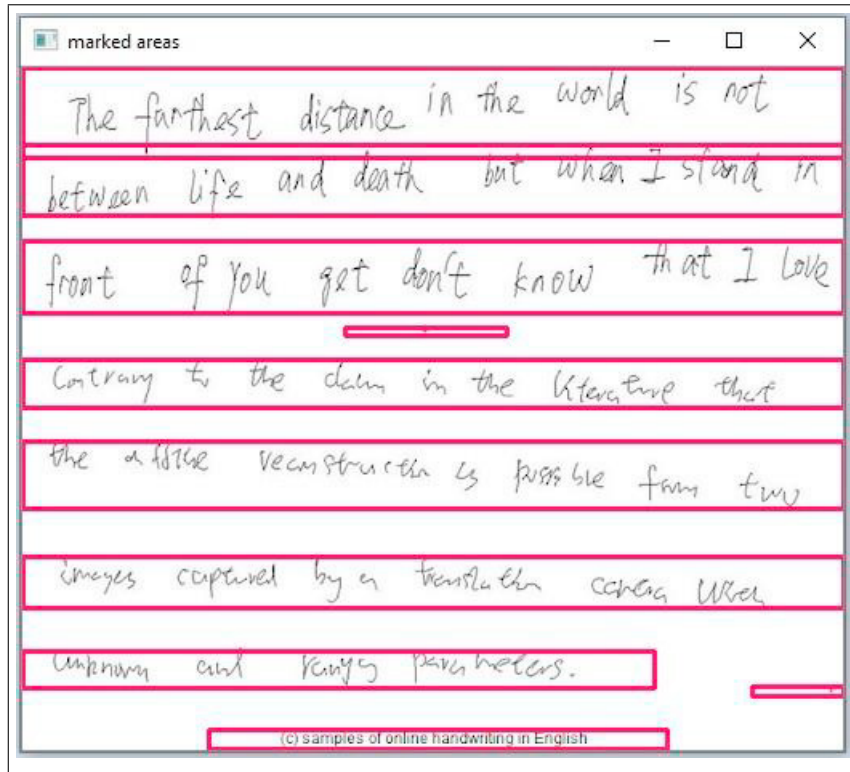 marked areas
The farthest distance in the world is not
between life and death but when I stand in
front of you get don't know that I love
Contrary to the claim in the literature that
the affine reconstruction is possible from two
images captured by a translation camera when
unknown and varying parameters.
(c) samples of online handwriting in English